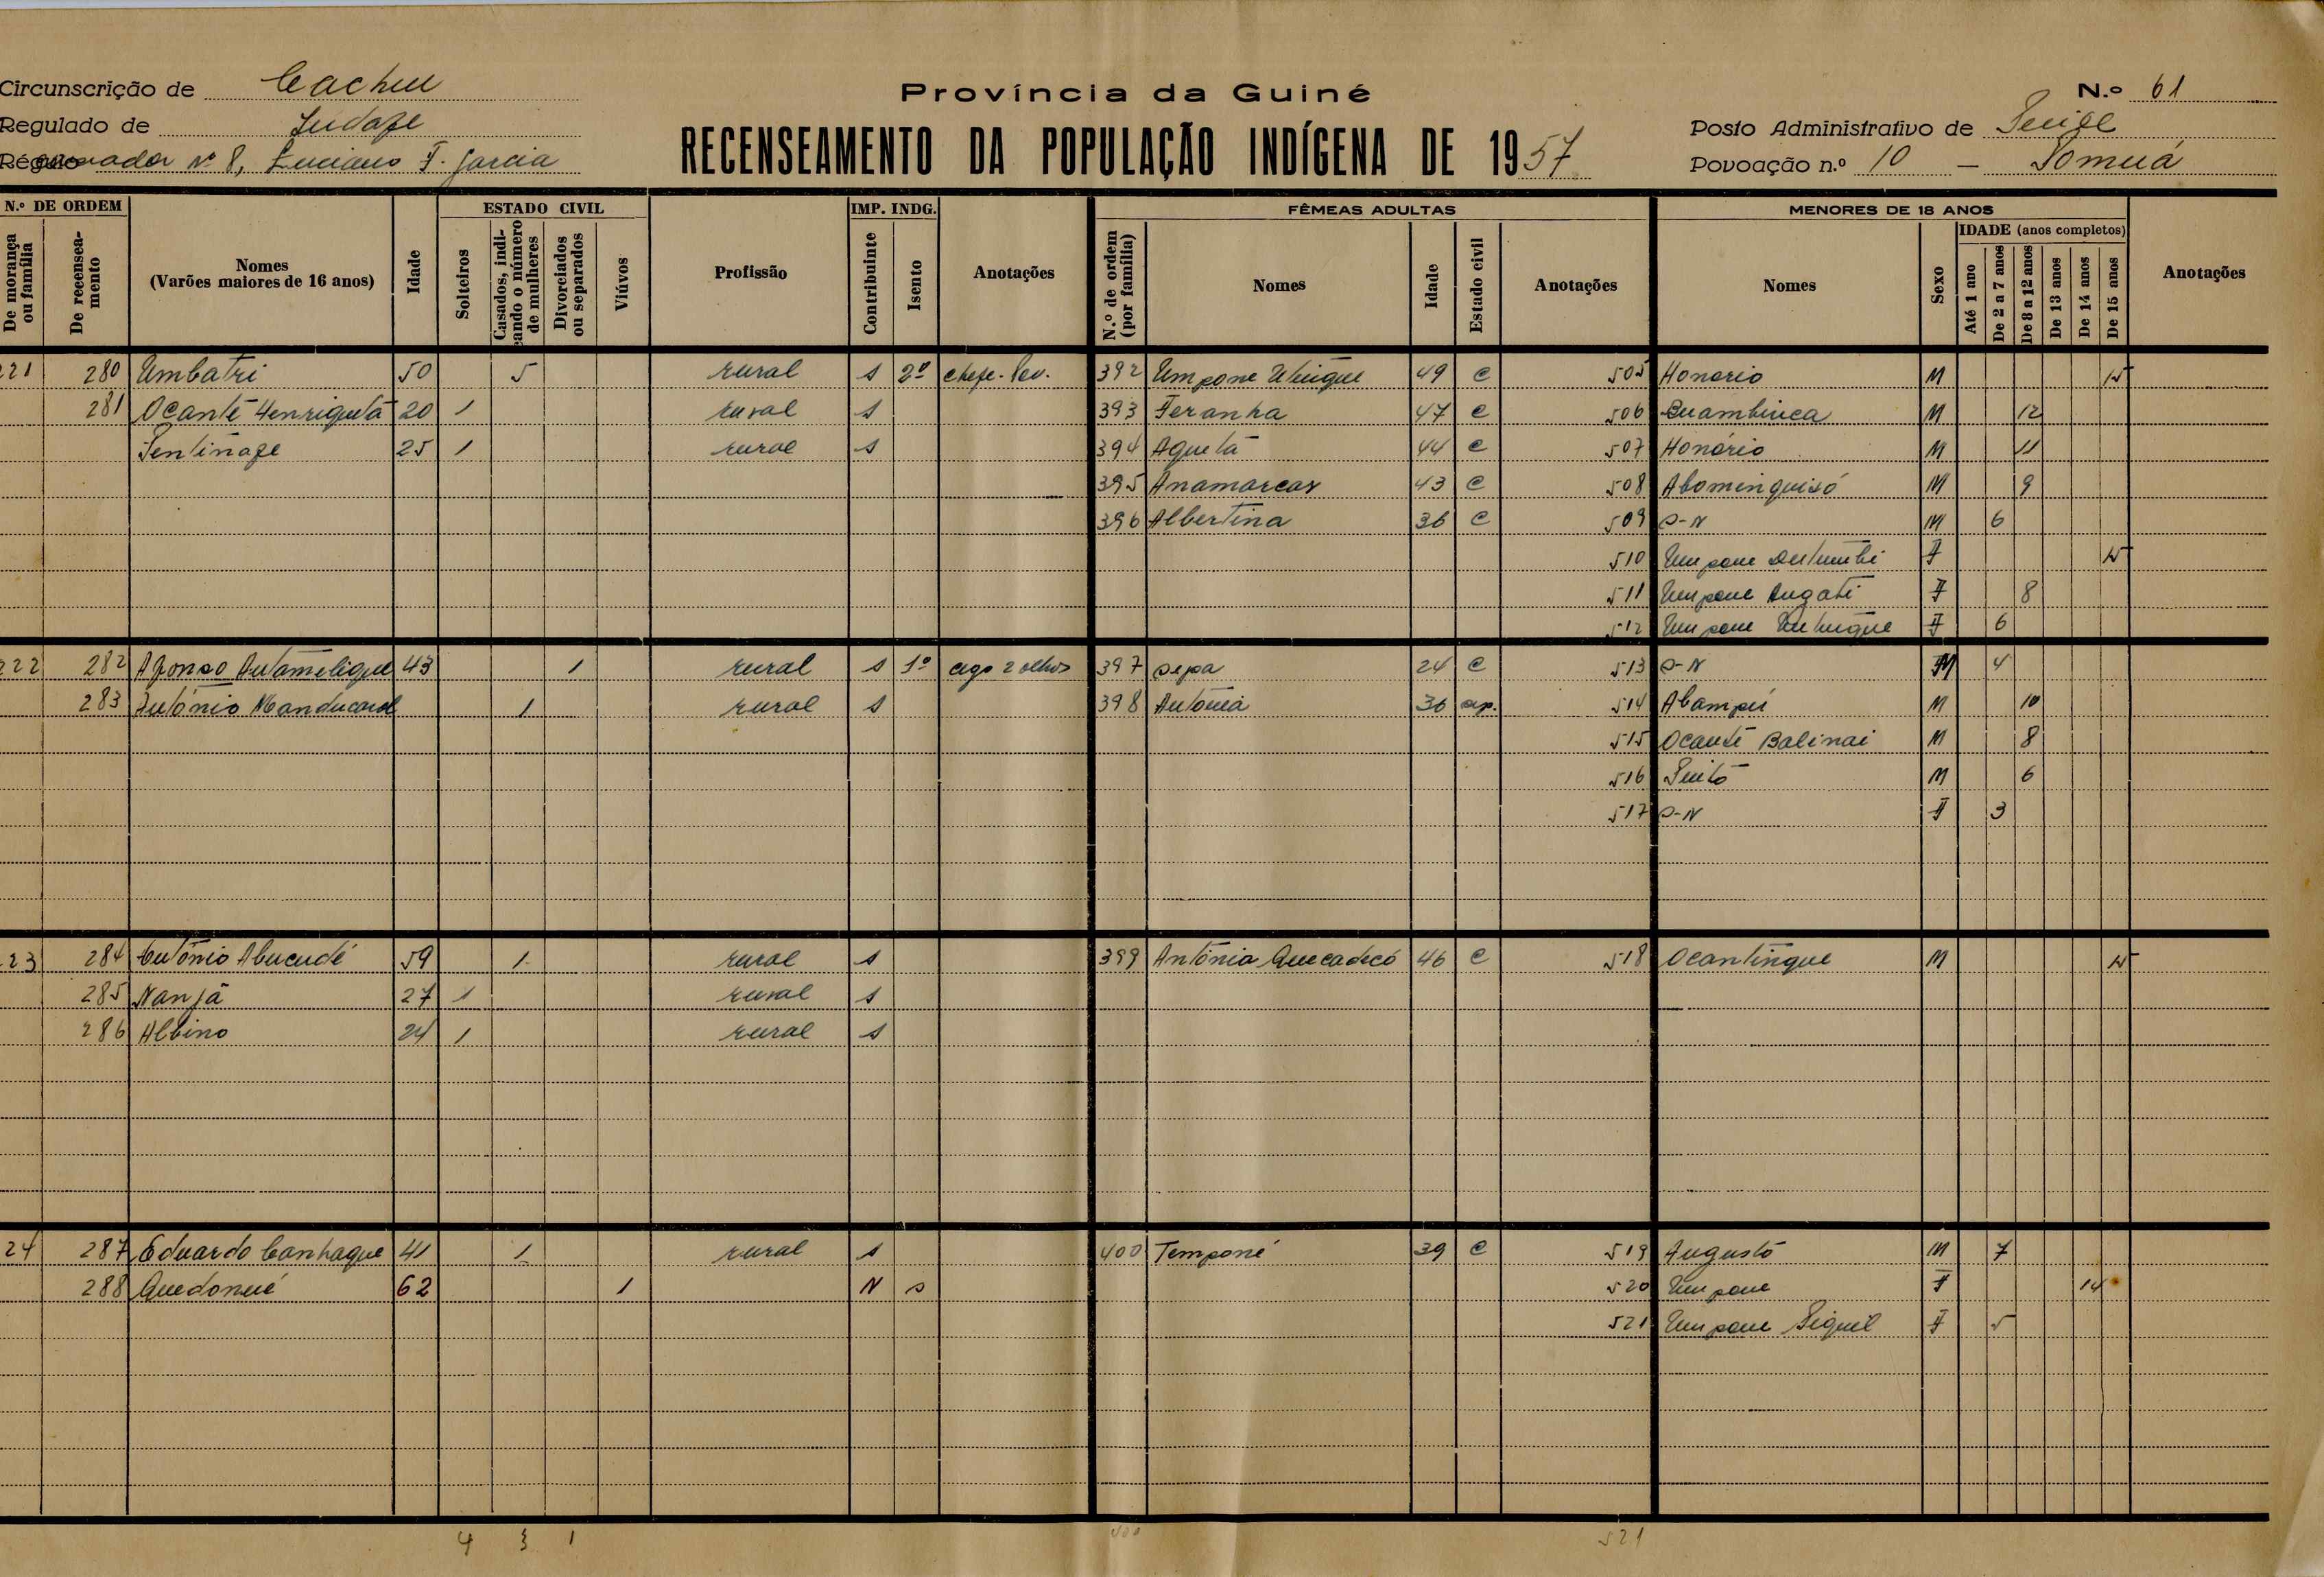 Circunscrição de Cacheu
Província da Guiné
N.º 61
Regulado de
RECENSEAMENTO DA POPULAÇÃO INDÍGENA DE 1957
Posto Administrativo de
Régulo nº 8, Luciano F. Garcia
Povoação n.º 10 –
N.º DE ORDEM
De morança ou família
De recenseamento
Nomes (Varões maiores de 16 anos)
Idade
ESTADO CIVIL
Solteiros
Casados, indicando o número de mulheres
Divorciados ou separados
Viúvos
Profissão
IMP. INDG.
Contribuinte
Isento
Anotações
FÊMEAS ADULTAS
N.º de ordem (por família)
Nomes
Idade
Estado civil
Anotações
MENORES DE 18 ANOS
Nomes
Sexo
IDADE (anos completos)
Até 1 ano
De 2 a 7 anos
De 8 a 12 anos
De 13 anos
De 14 anos
De 15 anos
Anotações
221 280 Umbatri 50 5 rural s 2º chefe 392 Umpone 49 c 505 Honorio M 15
281 Ocante Henriqueta 20 1 rural s 393 Feranha 47 c 506 M 12
25 1 rural s 394 Aqueta 44 c 507 Honório M 11
395 Anamarcas 43 c 508 Abominquisó M 9
396 Albertina 36 c 509 S-N M 6
510 Umpone F 15
511 Umpone F 8
512 Umpone F 6
222 282 Afonso 43 1 rural s 1º cego 2 olhos 397 Sepa 24 c 513 S-N M 4
283 António 1 rural s 398 Antónia 36 sep. 514 Abampei M 10
515 Ocante Balinai M 8
516 M 6
517 S-N F 3
223 284 António Abucudé 59 1 rural s 399 Antónia Quecadecó 46 c 518 Ocantingue M 15
285 Nanjã 27 1 rural s
286 Albino 24 1 rural s
24 287 Eduardo Canhaque 41 1 rural s 400 Temponé 39 c 519 Augusto M 7
288 Quedonué 62 1 N s 520 Umpone F 14
521 Umpone F 5
4 3 1 400 521